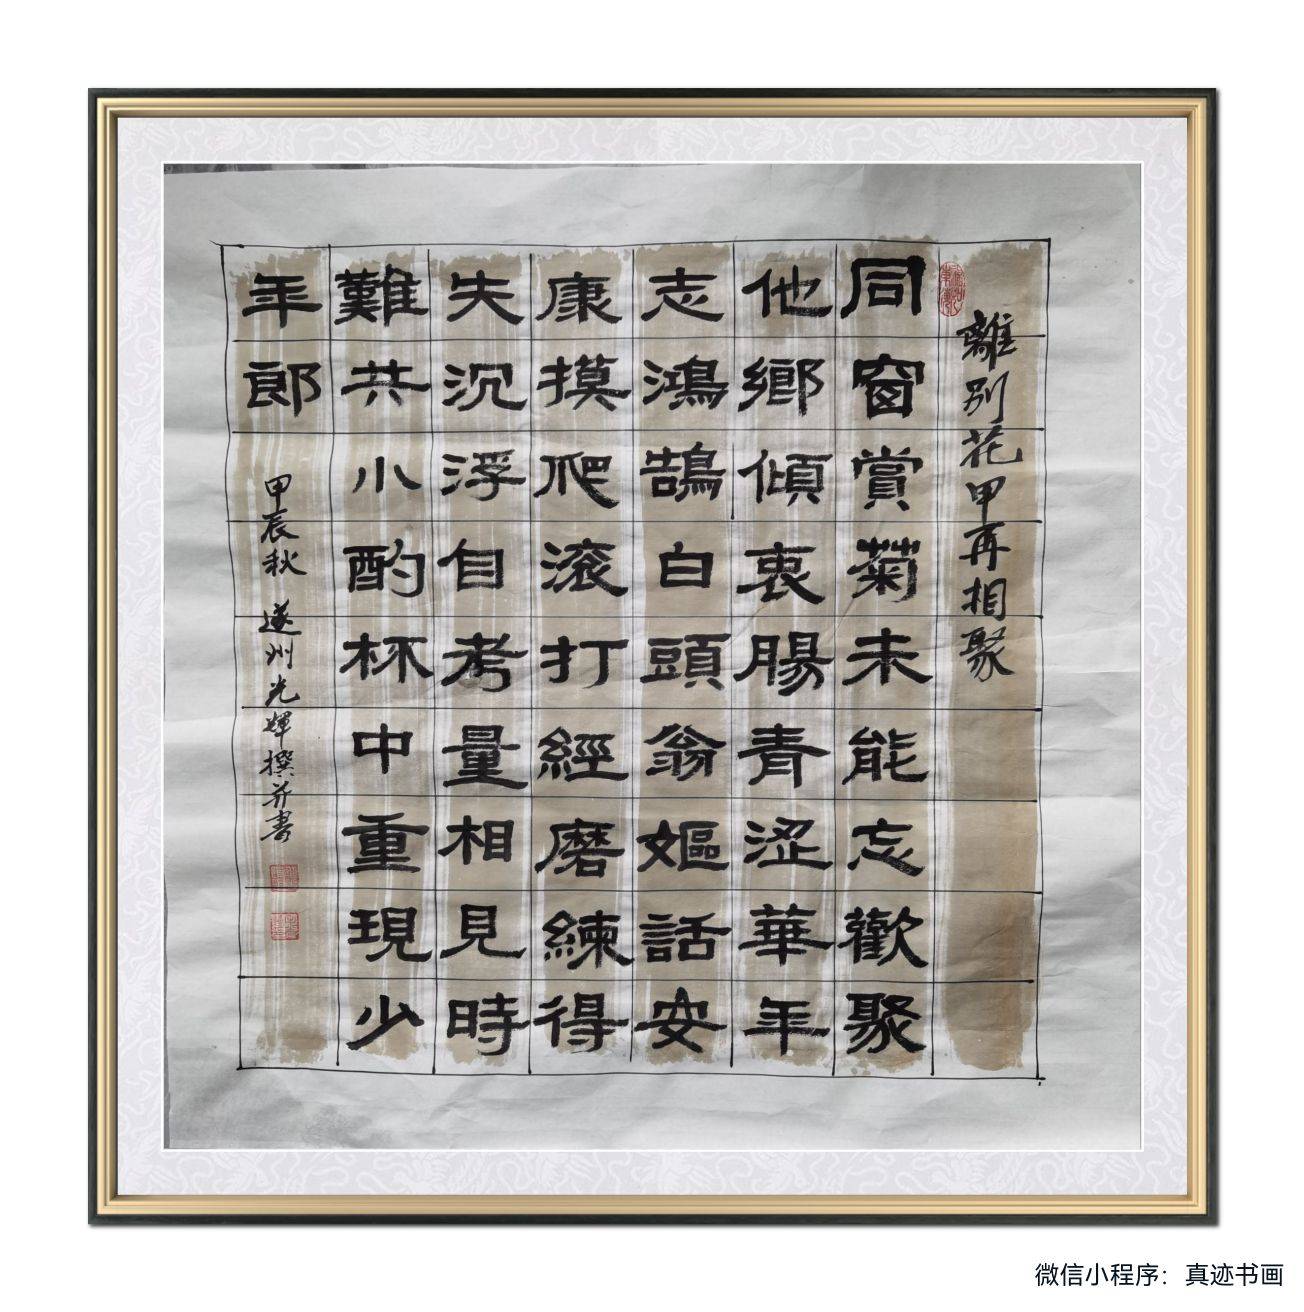 離別花甲再相聚
同窗賞菊未能忘歡聚
他鄉傾衷腸青澀華年
志鴻鵠白頭翁嫗話安
康摸爬滚打經磨練得
失沉浮自考量相見時
難共小酌杯中重現少
年郎
甲辰秋 遂州光輝撰并書
微信小程序：真迹书画